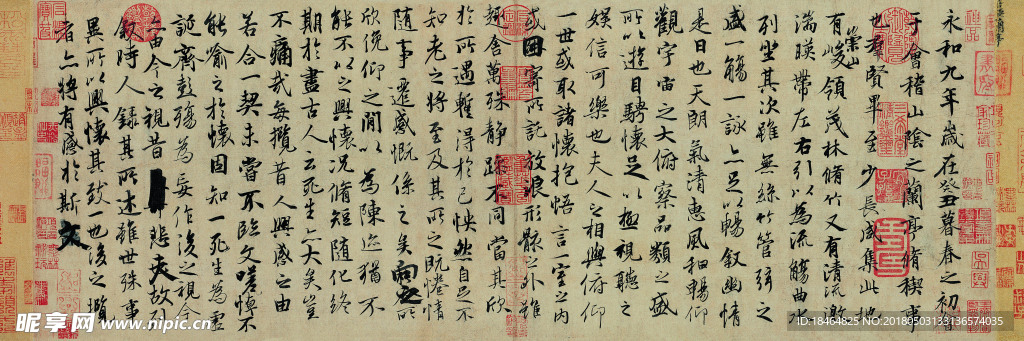 永和九年歲在癸丑暮春之初會
于會稽山陰之蘭亭脩稧事
也群賢畢至少長咸集此地
有崇山峻領茂林脩竹又有清流激
湍暎帶左右引以為流觴曲水
列坐其次雖無絲竹管弦之
盛一觴一詠亦足以暢敘幽情
是日也天朗氣清惠風和暢仰
觀宇宙之大俯察品類之盛
所以遊目騁懷足以極視聽之
娛信可樂也夫人之相與俯仰
一世或取諸懷抱悟言一室之內
或因寄所託放浪形骸之外雖
趣舍萬殊靜躁不同當其欣
於所遇暫得於己怏然自足不
知老之將至及其所之既惓情
隨事遷感慨係之矣向之所
欣俛仰之閒以為陳迹猶不
能不以之興懷況脩短隨化終
期於盡古人云死生亦大矣豈
不痛哉每攬昔人興感之由
若合一契未嘗不臨文嗟悼不
能喻之於懷固知一死生為虛
誕齊彭殤為妄作後之視今
亦由今之視昔悲夫故列
敘時人錄其所述雖世殊事
異所以興懷其致一也後之攬
者亦將有感於斯文
昵享网 www.nipic.cn
ID:18464825 NO:20180503133136574035